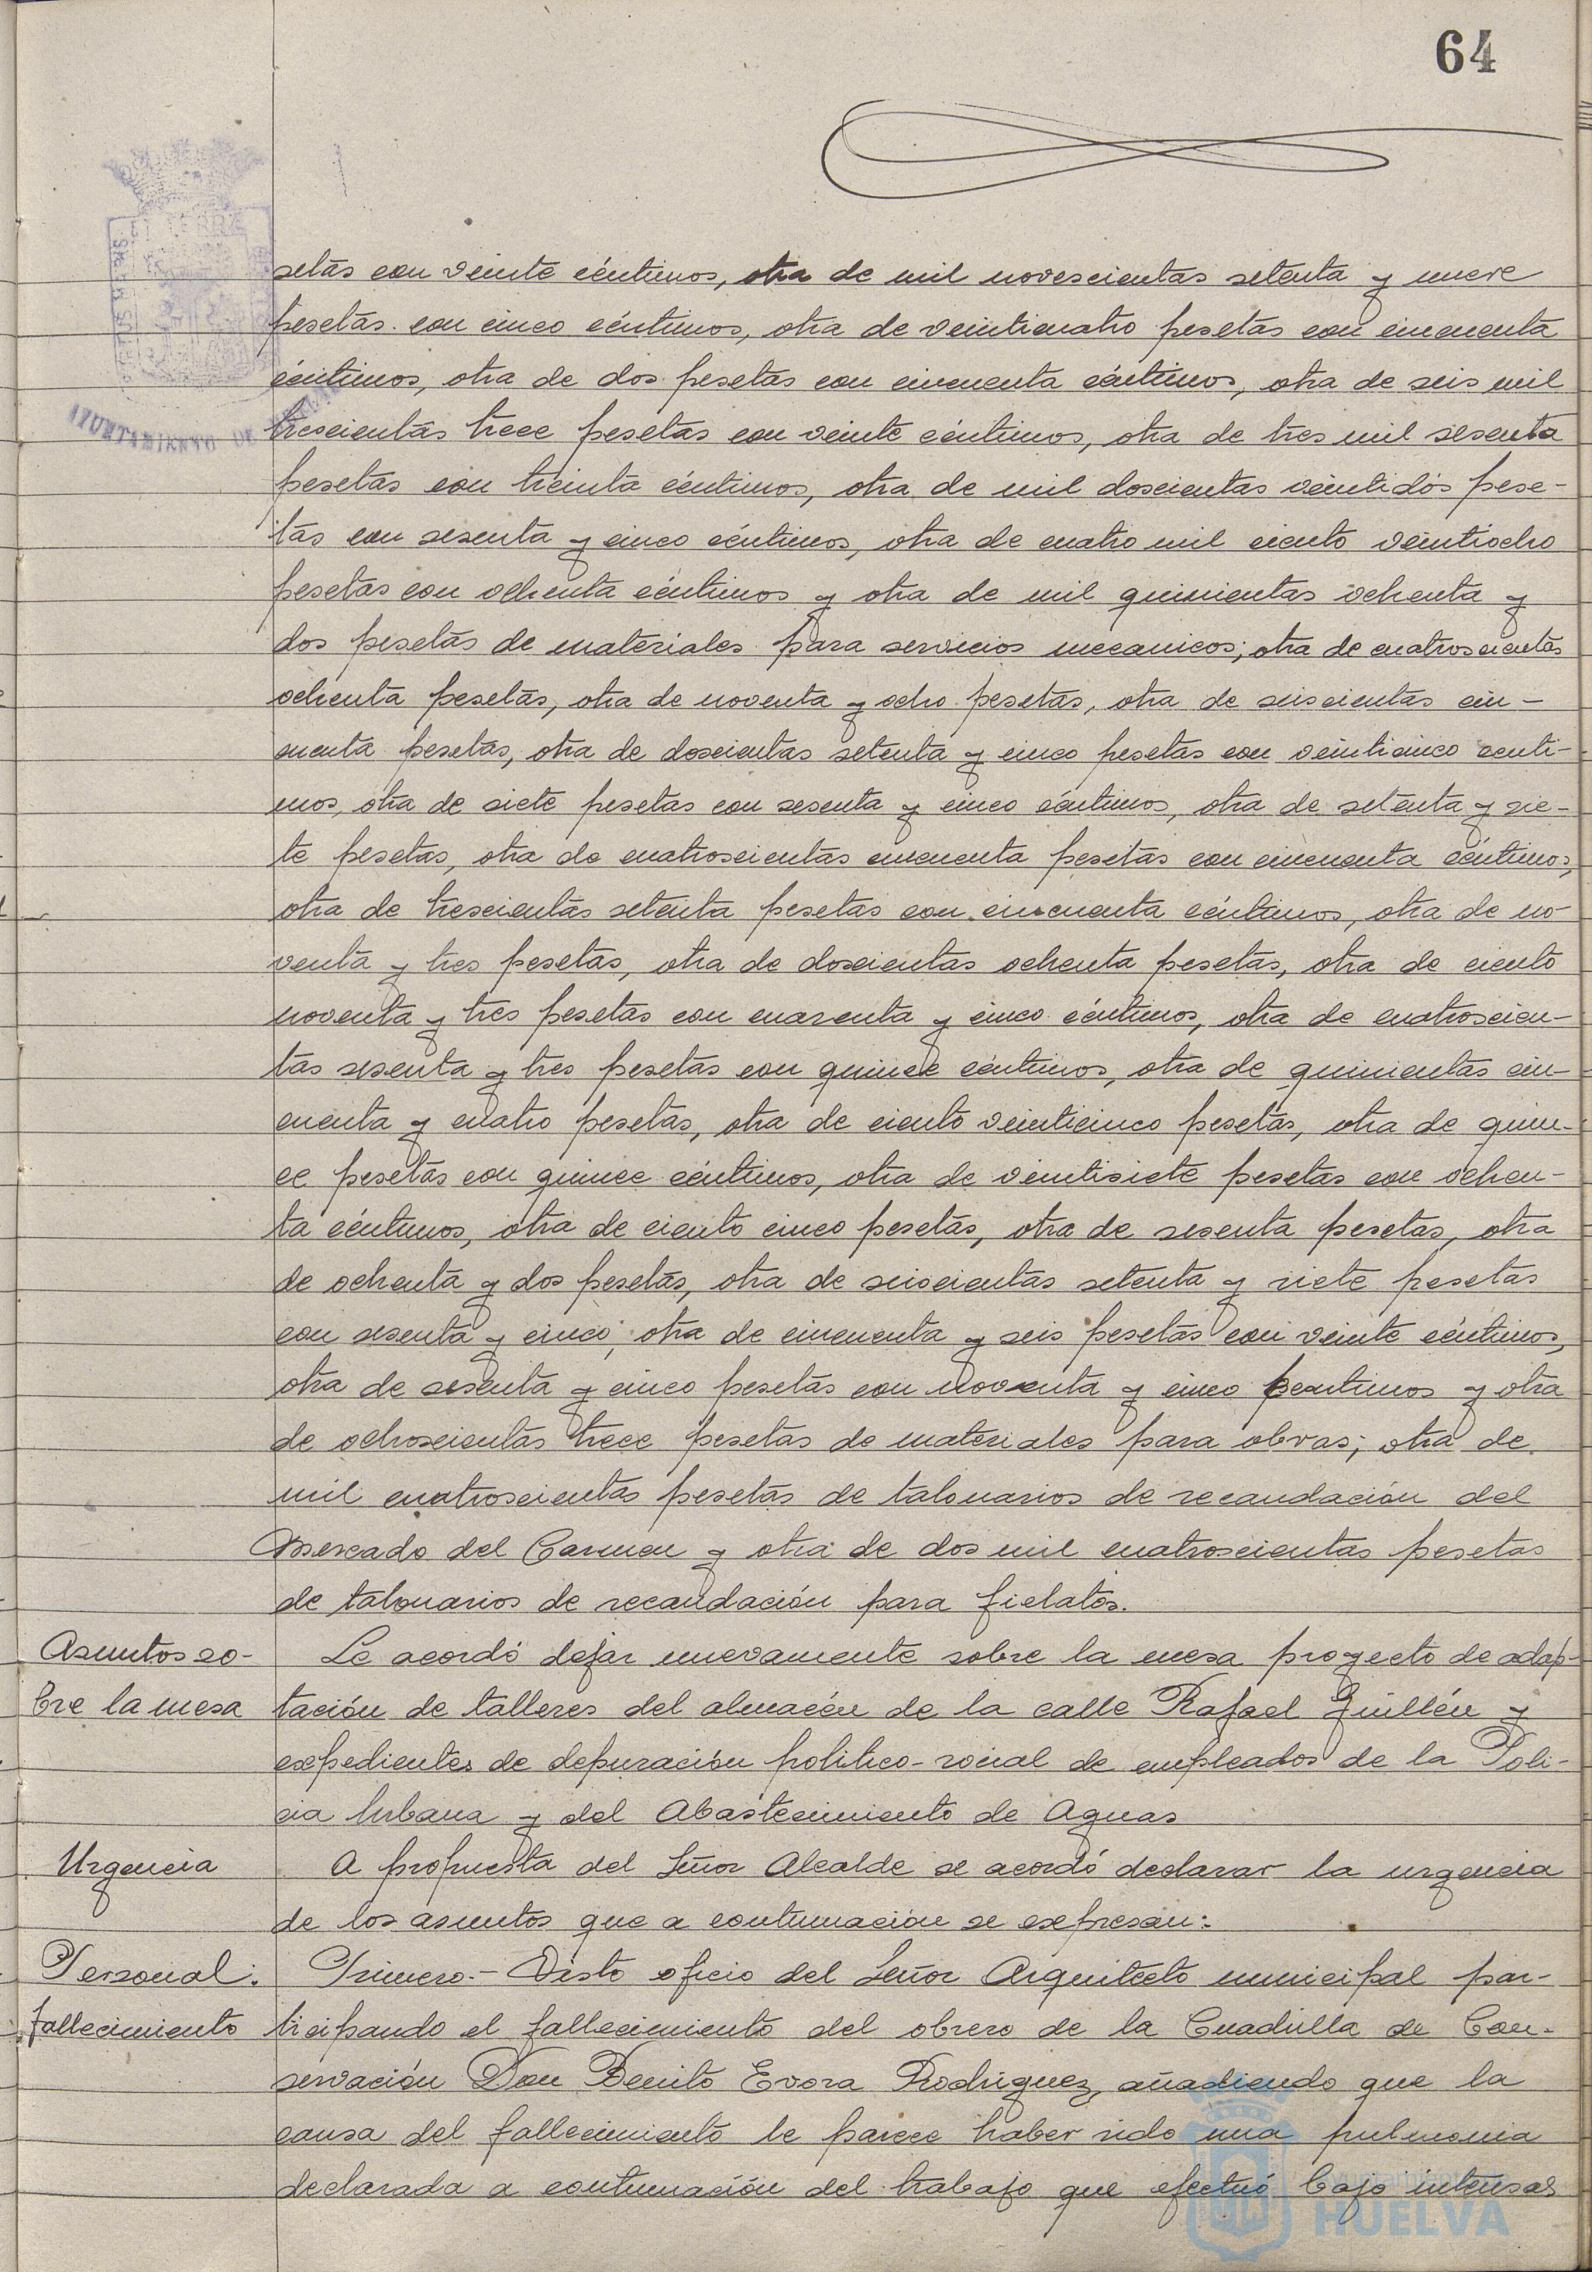 64
setas con veinte céntimos, otra de mil novescientas setenta y nueve
pesetas con cinco céntimos, otra de veinticuatro pesetas con cincuenta
céntimos, otra de dos pesetas con cincuenta céntimos, otra de seis mil
AYUNTAMIENTO DE
trescientas trece pesetas con veinte céntimos, otra de tres mil sesenta
pesetas con treinta céntimos, otra de mil doscientas veintidós pese-
tas con sesenta y cinco céntimos, otra de cuatro mil ciento veintiocho
pesetas con ochenta céntimos y otra de mil quinientas ochenta y
dos pesetas de materiales para servicios mecanicos; otra de cuatroscientas
ochenta pesetas, otra de noventa y ocho pesetas, otra de seiscientas cin-
cuenta pesetas, otra de doscientas setenta y cinco pesetas con veinticinco centi-
mos, otra de siete pesetas con sesenta y cinco céntimos, otra de setenta y sie-
te pesetas, otra de cuatroscientas cincuenta pesetas con cincuenta céntimos,
otra de trescientas setenta pesetas con cincuenta céntimos, otra de no-
venta y tres pesetas, otra de doscientas ochenta pesetas, otra de ciento
noventa y tres pesetas con cuarenta y cinco céntimos, otra de cuatroscien-
tas sesenta y tres pesetas con quince céntimos, otra de quinientas cin-
cuenta y cuatro pesetas, otra de ciento veinticinco pesetas, otra de quin-
ce pesetas con quince céntimos, otra de veintisiete pesetas con ochen-
ta céntimos, otra de ciento cinco pesetas, otra de sesenta pesetas, otra
de ochenta y dos pesetas, otra de seiscientas setenta y siete pesetas
con sesenta y cinco, otra de cincuenta y seis pesetas con veinte céntimos,
otra de sesenta y cinco pesetas con noventa y cinco centimos y otra
de ochoscientas trece pesetas de materiales para obras; otra de
mil cuatroscientas pesetas de talonarios de recaudación del
Mercado del Carmen y otra de dos mil cuatroscientas pesetas
de talonarios de recaudación para fielatos.
Asuntos so-
bre la mesa
Se acordó dejar nuevamente sobre la mesa proyecto de adap-
tación de talleres del almacén de la calle Rafael Guillén y
expedientes de depuración politico-social de empleados de la Poli-
cia Urbana y del Abastecimiento de Aguas
Urgencia
A propuesta del Señor Alcalde se acordó declarar la urgencia
de los asuntos que a continuación se expresan:
Personal:
fallecimiento
Primero.- Visto oficio del Señor Arquitecto municipal par-
ticipando el fallecimiento del obrero de la Cuadrilla de Con-
servación Don Benito Evora Rodriguez, añadiendo que la
causa del fallecimiento le parece haber sido una pulmonia
declarada a continuación del trabajo que efectuó bajo intensas
Ayuntamiento de
HUELVA